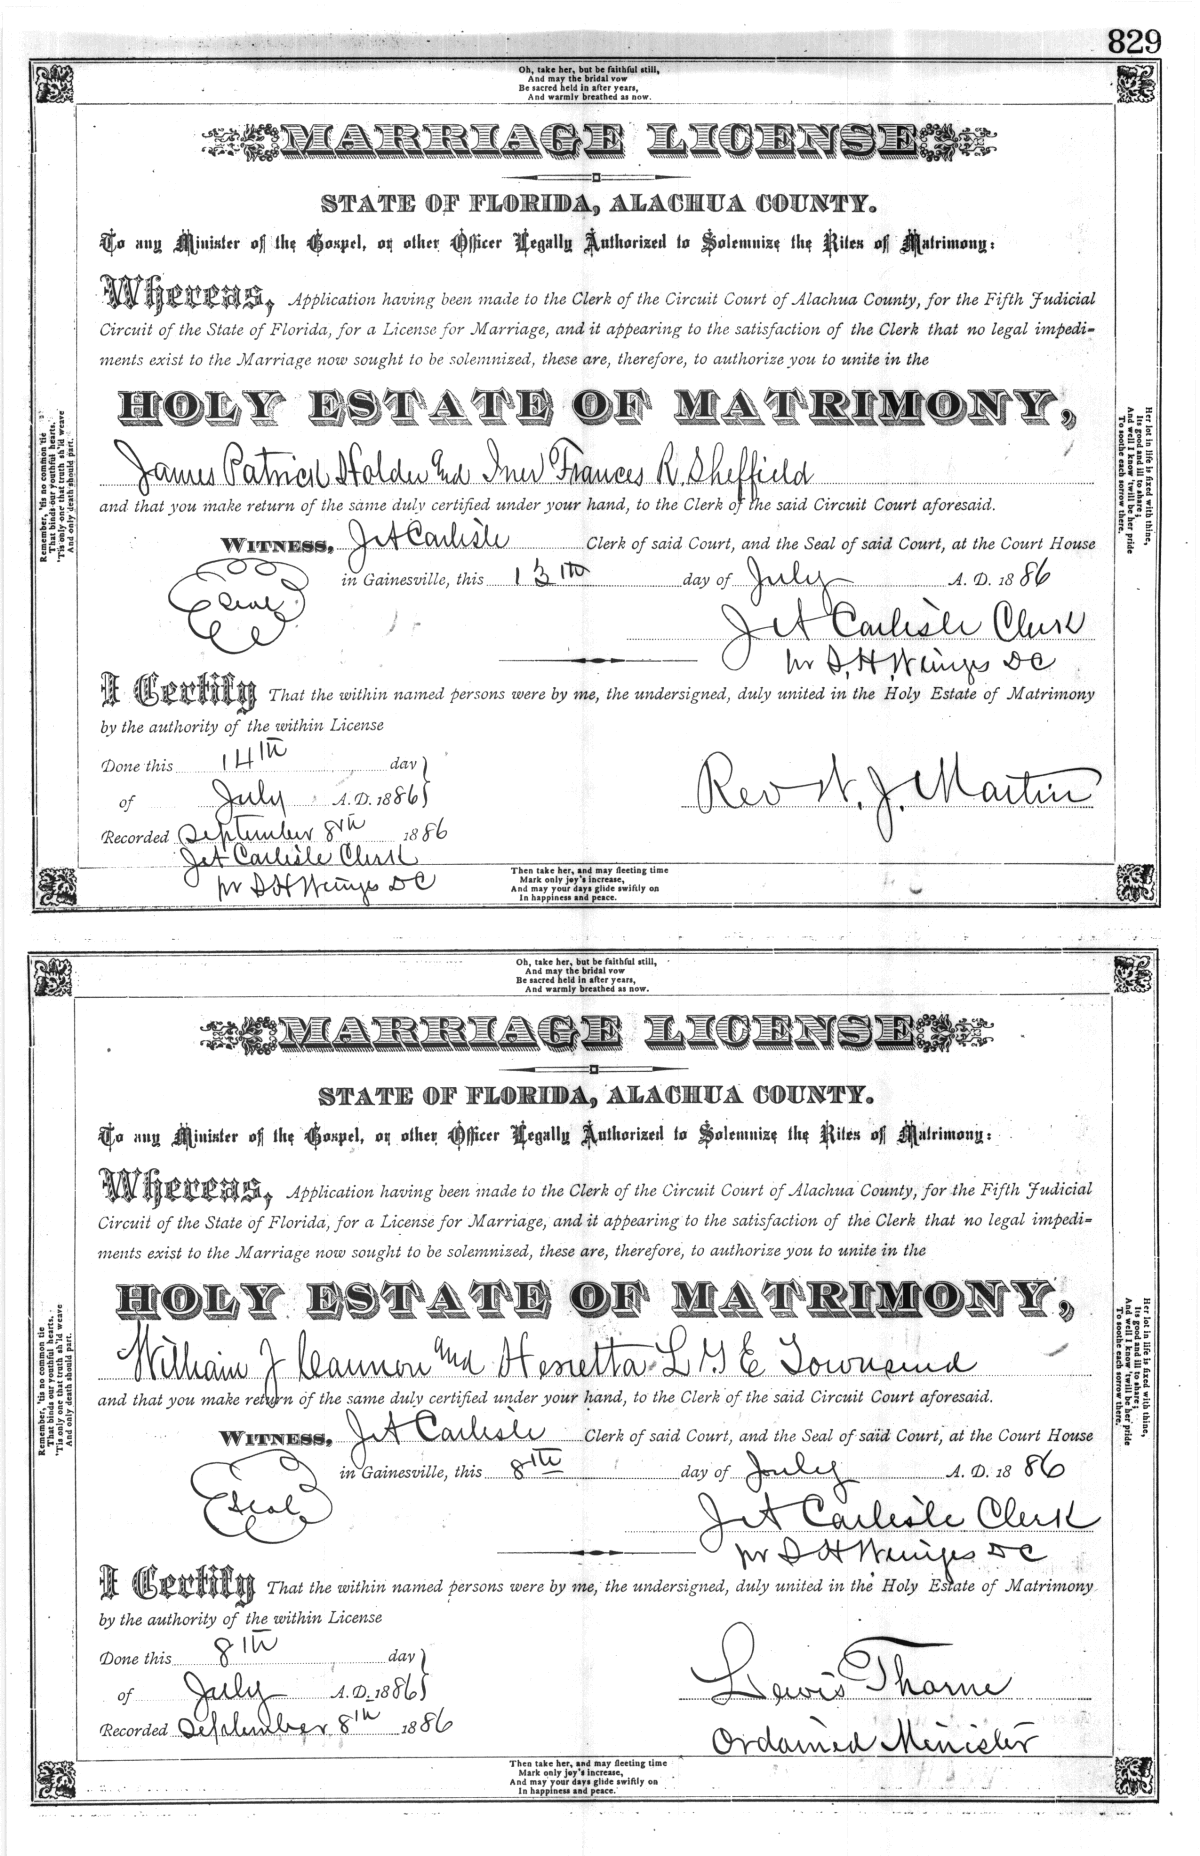 829
Oh, take her, but be faithful still,
And may the bridal vow
Be sacred held in after years,
And warmly breathed as now.
MARRIAGE LICENSE
STATE OF FLORIDA, ALACHUA COUNTY.
To any Minister of the Gospel, or other Officer Legally Authorized to Solemnize the Rites of Matrimony:
Whereas, Application having been made to the Clerk of the Circuit Court of Alachua County, for the Fifth Judicial
Circuit of the State of Florida, for a License for Marriage, and it appearing to the satisfaction of the Clerk that no legal impedi-
ments exist to the Marriage now sought to be solemnized, these are, therefore, to authorize you to unite in the
HOLY ESTATE OF MATRIMONY,
James Patrick Holder and Frances R. Sheffield
and that you make return of the same duly certified under your hand, to the Clerk of the said Circuit Court aforesaid.
WITNESS, J A Carlisle Clerk of said Court, and the Seal of said Court, at the Court House
Seal
in Gainesville, this 13th day of July A. D. 1886
J A Carlisle Clerk
pr S. H. Wienges DC
I Certify That the within named persons were by me, the undersigned, duly united in the Holy Estate of Matrimony
by the authority of the within License
Done this 14th day
of July A. D. 1886
Rev W. J. Martin
Recorded September 8th 1886
J A Carlisle Clerk
pr S H Wienges DC
Then take her, and may fleeting time
Mark only joy's increase,
And may your days glide swiftly on
In happiness and peace.
Remember, 'tis no common tie
That binds our youthful hearts,
'Tis only one that truth sh'ld weave
And only death should part.
Her lot in life is fixed with thine,
Its good and ill to share;
And well I know 'twill be her pride
To soothe each sorrow there.
Oh, take her, but be faithful still,
And may the bridal vow
Be sacred held in after years,
And warmly breathed as now.
MARRIAGE LICENSE
STATE OF FLORIDA, ALACHUA COUNTY.
To any Minister of the Gospel, or other Officer Legally Authorized to Solemnize the Rites of Matrimony:
Whereas, Application having been made to the Clerk of the Circuit Court of Alachua County, for the Fifth Judicial
Circuit of the State of Florida, for a License for Marriage, and it appearing to the satisfaction of the Clerk that no legal impedi-
ments exist to the Marriage now sought to be solemnized, these are, therefore, to authorize you to unite in the
HOLY ESTATE OF MATRIMONY,
William J Cannon and Henrietta L G E Townsend
and that you make return of the same duly certified under your hand, to the Clerk of the said Circuit Court aforesaid.
WITNESS, J A Carlisle Clerk of said Court, and the Seal of said Court, at the Court House
Seal
in Gainesville, this 8th day of July A. D. 1886
J A Carlisle Clerk
pr S H Wienges DC
I Certify That the within named persons were by me, the undersigned, duly united in the Holy Estate of Matrimony
by the authority of the within License
Done this 8th day
of July A. D. 1886
Lewis Thorne
Recorded September 8th 1886
Ordained Minister
Then take her, and may fleeting time
Mark only joy's increase,
And may your days glide swiftly on
In happiness and peace.
Remember, 'tis no common tie
That binds our youthful hearts,
'Tis only one that truth sh'ld weave
And only death should part.
Her lot in life is fixed with thine,
Its good and ill to share;
And well I know 'twill be her pride
To soothe each sorrow there.